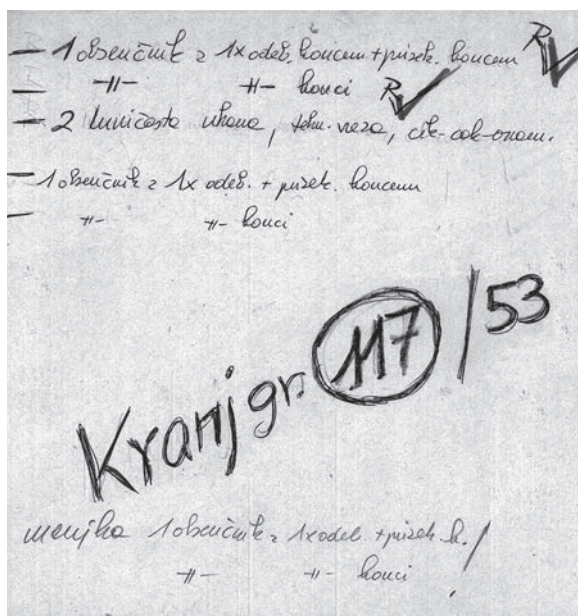 – 1 obsenčnik z 1x odeb. koncem + prisek. koncem R✓
– -||- -||- konci R✓
– 2 luničasta uhana, tehn. veza, cik-cak-ornam.
– 1 obsenčnik z 1x odeb. + prisek. koncem
– -||- -||- konci
Kranj gr. 117 / 53
manjka 1 obsenčnik z 1x odeb. + prisek. k. /
-||- -||- konci